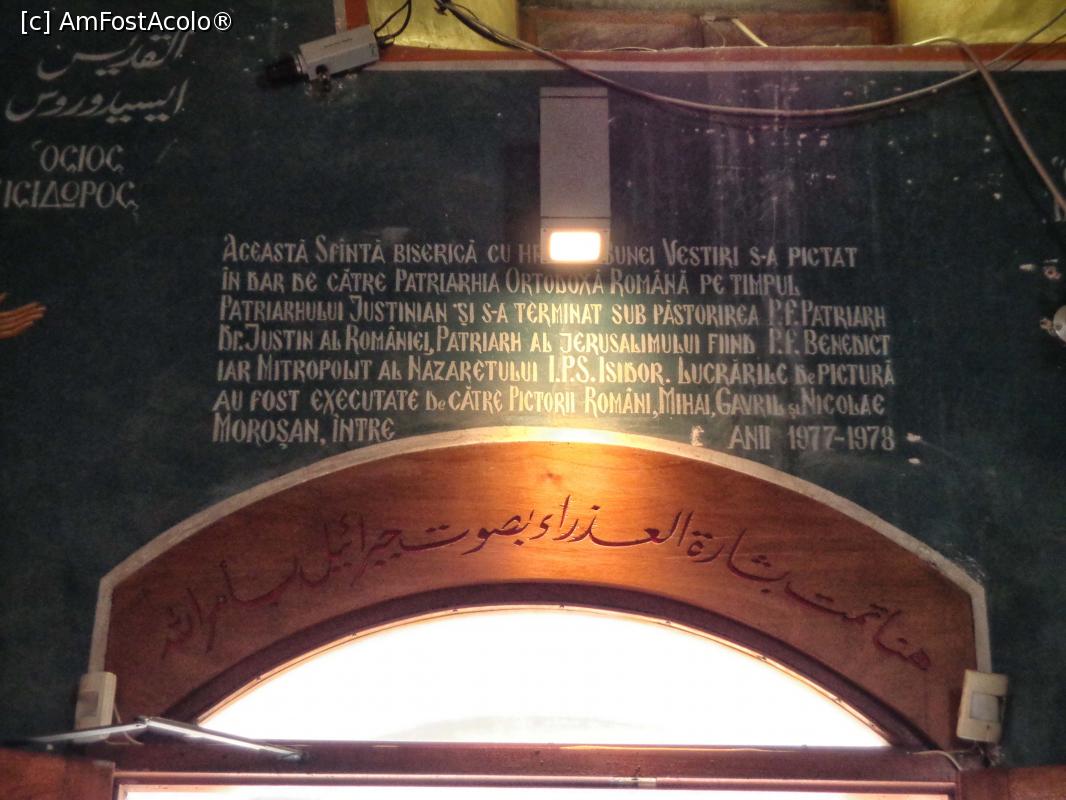 [c] AmFostAcolo®
القديس
ايسيذوروس
ὍΣΙΟΣ
ἸΣΙΔΩΡΟΣ
ACEASTĂ SFÎNTĂ BISERICĂ CU BUNEI VESTIRI S-A PICTAT
ÎN DAR DE CĂTRE PATRIARHIA ORTODOXĂ ROMÂNĂ PE TIMPUL
PATRIARHULUI JUSTINIAN ȘI S-A TERMINAT SUB PĂSTORIREA P.F. PATRIARH
DR. JUSTIN AL ROMÂNIEI, PATRIARH AL JERUSALIMULUI FIIND P.F. BENEDICT
IAR MITROPOLIT AL NAZARETULUI I.P.S. ISIDOR. LUCRĂRILE DE PICTURĂ
AU FOST EXECUTATE DE CĂTRE PICTORII ROMÂNI, MIHAI, GAVRIL ȘI NICOLAE
MOROȘAN, ÎNTRE ANII 1977-1978
هنا تمت بشارة العذراء بصوت جبرائيل بأمر الله